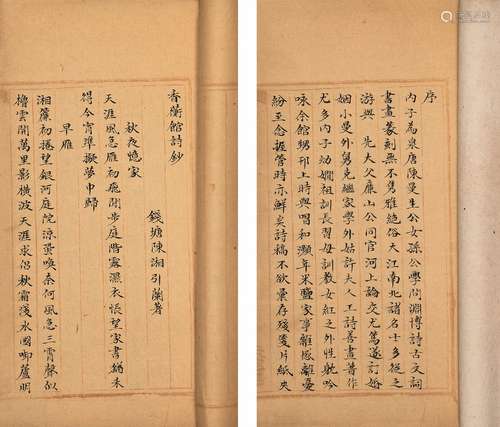 序
內子為泉唐陳曼生公女孫公學問淵博詩古文詞
書畫篆刻無不雋雅絕俗大江南北諸名士多從之
游與 先大父廉山公同官河上論交尤篤遂訂婚
姻小曼外舅克繼家學外姑許夫人工詩善畫著作
尤多內子幼嫻祖訓長習母訓教女紅之外性躭吟
咏余館甥邗上時與唱和瀕年米鹽家事離愁離憂
紛至念握管時亦鮮矣詩稿不欲彙存殘箋片紙央
香蘅館詩鈔
錢塘陳湘引蘭著
秋夜憶家
天涯風急雁初飛閒步庭階露濕衣悵望家書猶未
得今宵準擬夢中歸
早雁
湘簾初捲望銀河庭院涼蛩喚奈何風急三霄聲似
櫓雲開萬里影橫波天涯求侶秋霜淺水國啣蘆明